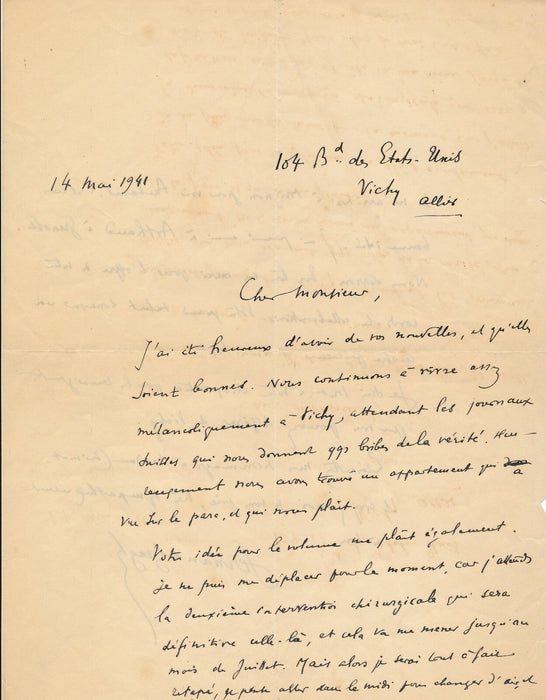 104 Bd des Etats-Unis
14 mai 1941
Vichy
Allier
Cher Monsieur,
J'ai été heureux d'avoir de vos nouvelles, et qu'elles
soient bonnes. Nous continuons à vivre assez
mélancoliquement à Vichy, attendant les journaux
suisses, qui nous donnent qqs bribes de la vérité. Heu-
reusement nous avons trouvé un appartement qui a
vue sur le parc, et qui nous plaît.
Votre idée pour le volume me plaît également.
Je ne puis me déplacer pour le moment, car j'attends
la deuxième intervention chirurgicale qui sera
définitive celle-là, et cela va me mener jusqu'au
mois de Juillet. Mais alors je serai tout à fait
retapé, je pense aller dans le midi pour changer d'air, et